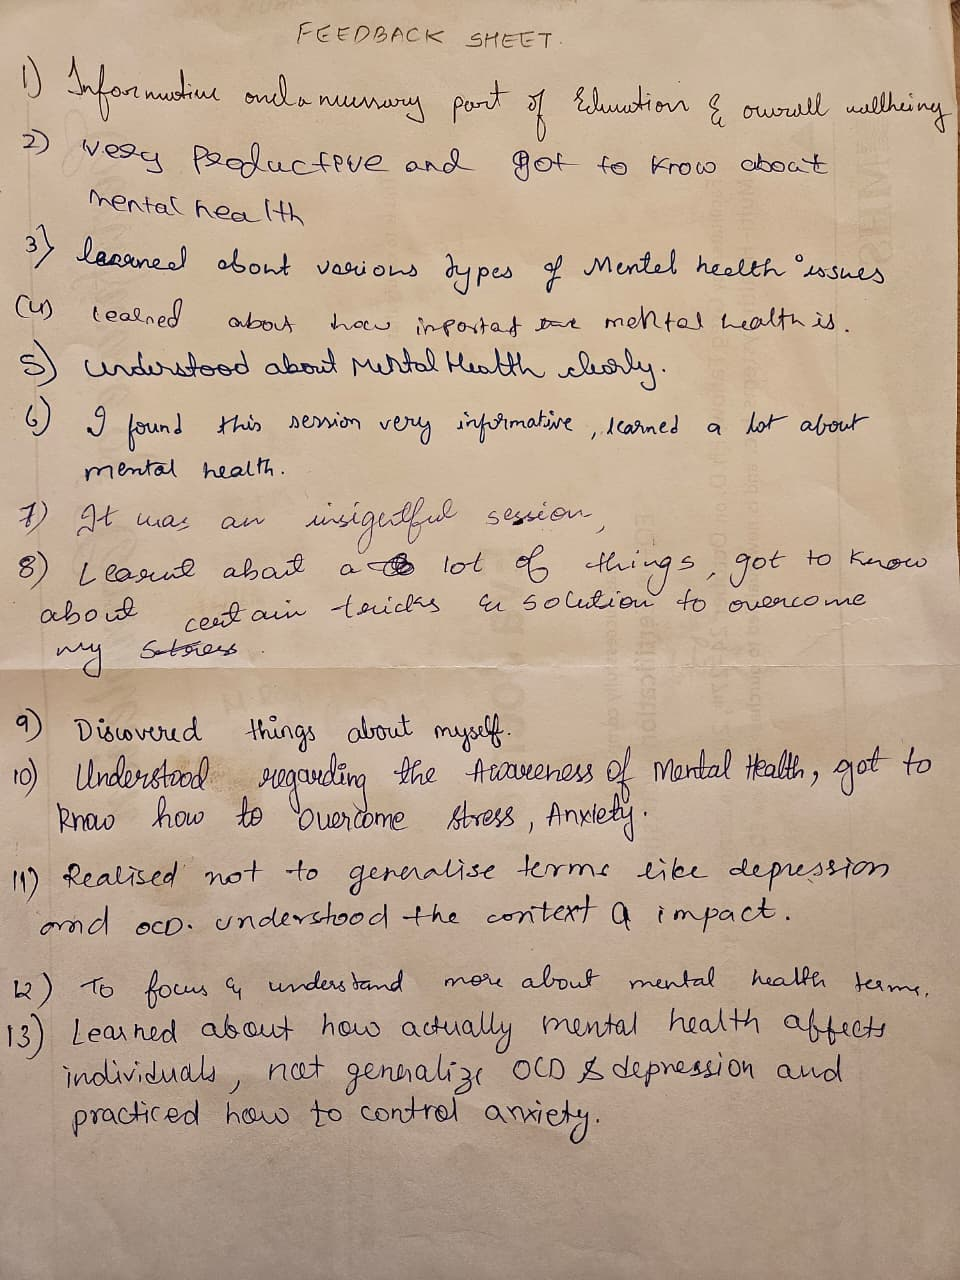 FEEDBACK SHEET.
1) Informative and a necessary part of Education & overall wellbeing
2) very Productive and got to know about
mental health
3) learned about various types of Mental health issues
(4) learned about how importat mental health is.
5) understood about Mental Health clearly.
6) I found this session very informative, learned a lot about
mental health.
7) It was an insigentful session,
8) Learnt about a lot of things, got to know
about certain tricks & solution to overcome
my Stress.
9) Discovered things about myself.
10) Understood regarding the Awareness of Mental Health, got to
know how to overcome stress, Anxiety.
11) Realised not to generalise terms like depression
and OCD. understood the context & impact.
12) To focus & understand more about mental health terms.
13) Learned about how actually mental health affects
individuals, not generalize OCD & depression and
practiced how to control anxiety.